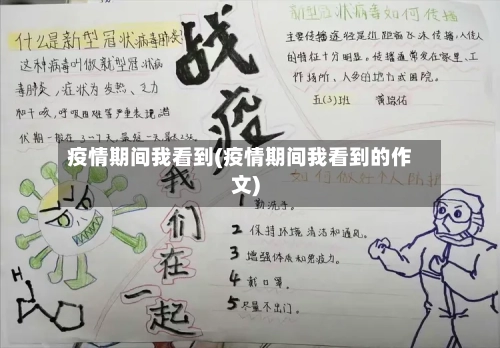 什么是新型冠状病毒肺炎
这种病毒叫做新型冠状病
毒肺炎,症状为发热、乏力
和干咳,呼吸困难等严重表现。潜
伏期一般在3一7天,最短一天,最长
战疫
我们在一起
新型冠状病毒如何传播
主要传播途径是近距离飞沫传播,人传人
的特征十分明显。传播通常发生在家里、工
作场所、人多的地方或医院。
五(3)班
疫情期间我看到(疫情期间我看到的作
文)
如何做好个人防护
1 勤洗手。
2 保持环境清洁和通风。
3 增强体质和免疫力。
4 戴口罩。
5 尽量不出门。
H